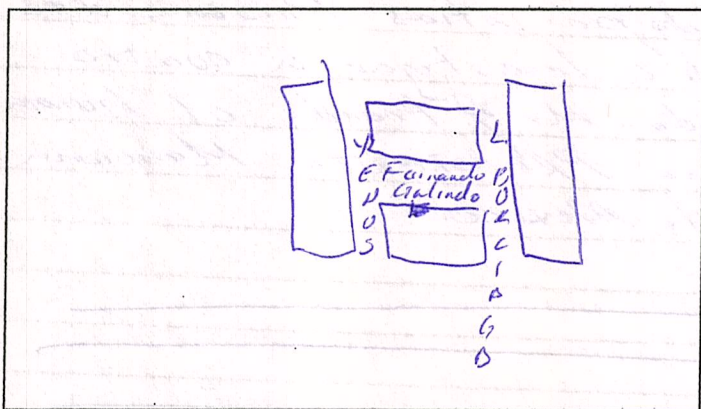 VENUS
Fernando
Galindo
L BURCIAGA